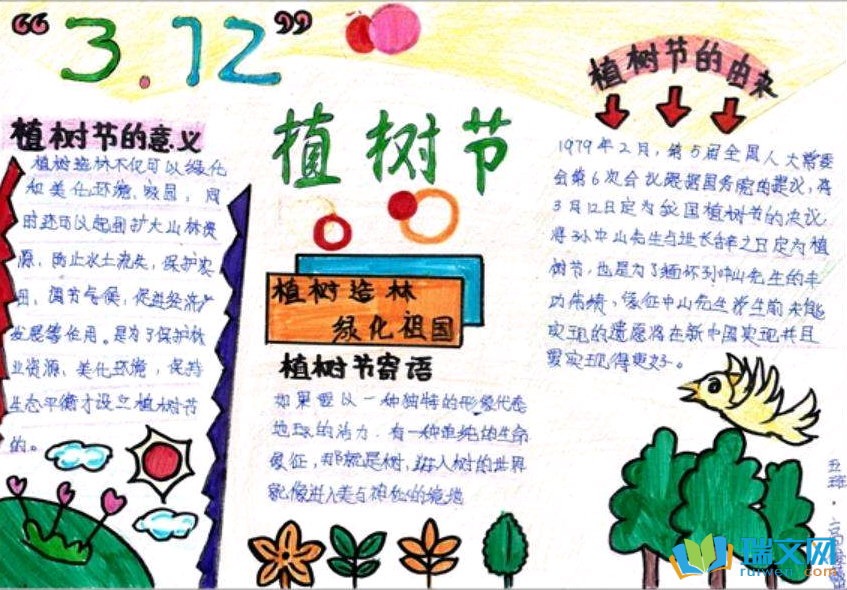 “3.12”
植树节
植树节的意义
植树造林不仅可以绿化
和美化环境、家园，同
时还可以起到扩大山林资
源、防止水土流失，保护农
田、调节气候，促进经济
发展等作用。是为了保护林
业资源、美化环境，保持
生态平衡才设立植树节
的。
植树造林
绿化祖国
植树节寄语
如果要以一种独特的形象代表
地球的活力，有一种单纯的生命
象征，那就是树，进入树的世界
就像进入美与神秘的境地
植树节的由来
1979年2月，第5届全国人大常委
会第6次会议根据国务院的提议，将
3月12日定为我国植树节的决议
将孙中山先生与世长辞之日定为植
树节，也是为了缅怀孙中山先生的丰
功伟绩，象征中山先生生前未能
实现的遗愿将在新中国实现并且
要实现得更好。
五班·
瑞文网
ruiwen.com